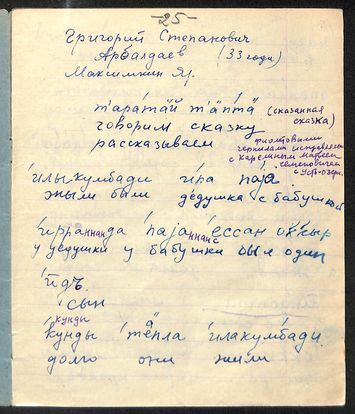 -25-
Григорий Степанович
Арбалдаев (33 года)
Максимкин Яр.
т'ара́та́й т'ӓптӓ (сказанная сказка)
говорим сказку
рассказываем
фиолетовыми
чернилами исправлено
с Карелиным Матвеем
с Усть-Озерн.
и́лыкумбади и́ра паја
жили были дедушка с бабушкой
и́рраннанда паjаннанс е́ссан оккыр
у дедушки у бабушки был один
ӣдъ.
сын
кунды
ку́нды тёпла илакумба́ди
долго они жили